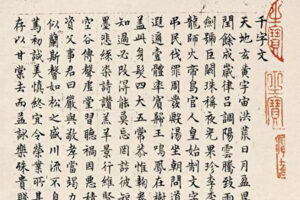 千字文
天地玄黃宇宙洪荒日月盈昃
閏餘成歲律呂調陽雲騰致雨
劍號巨闕珠稱夜光果珍李柰
龍師火帝鳥官人皇始制文字
弔民伐罪周發殷湯坐朝問道
遐邇壹體率賓歸王鳴鳳在樹
蓋此身髮四大五常恭惟鞠養
知過必改得能莫忘罔談彼短
墨悲絲染詩讚羔羊景行維賢
空谷傳聲虛堂習聽禍因惡積
資父事君曰嚴與敬孝當竭力
似蘭斯馨如松之盛川流不息
篤初誠美慎終宜令榮業所基
存以甘棠去而益詠樂殊貴賤